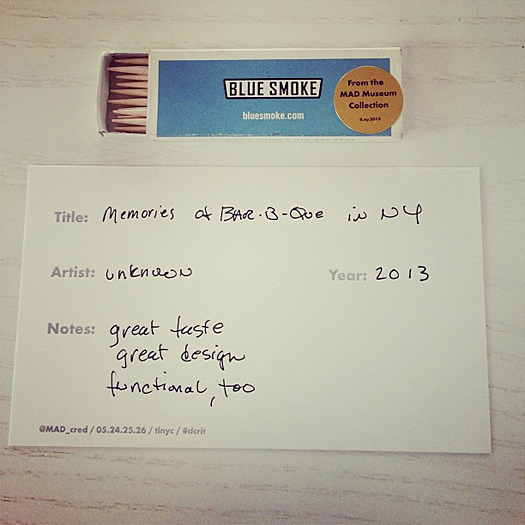 BLUE SMOKE
bluesmoke.com
From the
MAD Museum
Collection
Title: Memories of BAR-B-Que in NY
Artist: unknown
Year: 2013
Notes: great taste
great design
functional, too
@MAD_cred / 05.24.25.26 / tinyc / #dcrit